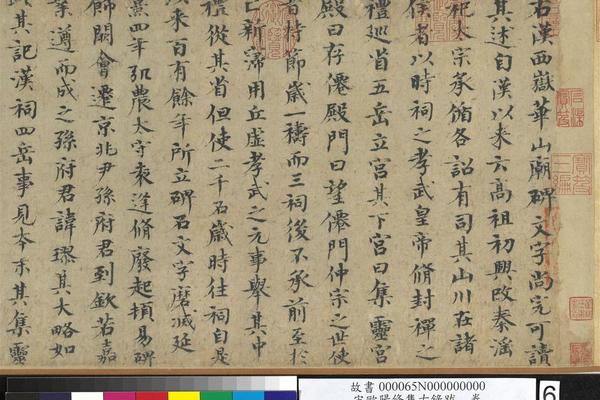 右漢西嶽華山廟碑文字尚完可讀
其述自漢以來云高祖初興改秦淫
祀太宗承循各詔有司其山川在諸
侯者以時祠之孝武皇帝脩封禪之
禮巡省五岳立宮其下宮曰集靈宮
殿曰存僊殿門曰望僊門仲宗之世使
者持節歲一禱而三祠後不承前至於
亡新寖用丘虛孝武之元事舉其中
禮從其省但使二千石歲時往祠自是
以來百有餘年所立碑石文字磨滅延
熹四年弘農太守袁逢脩廢起頓易碑
飾闕會遷京兆尹孫府君到欽若嘉
業遵而成之孫府君諱璆其大略如
此其記漢祠四岳事見本末其集靈
故書 000065N000000000
宋歐陽修集古錄跋 卷
6